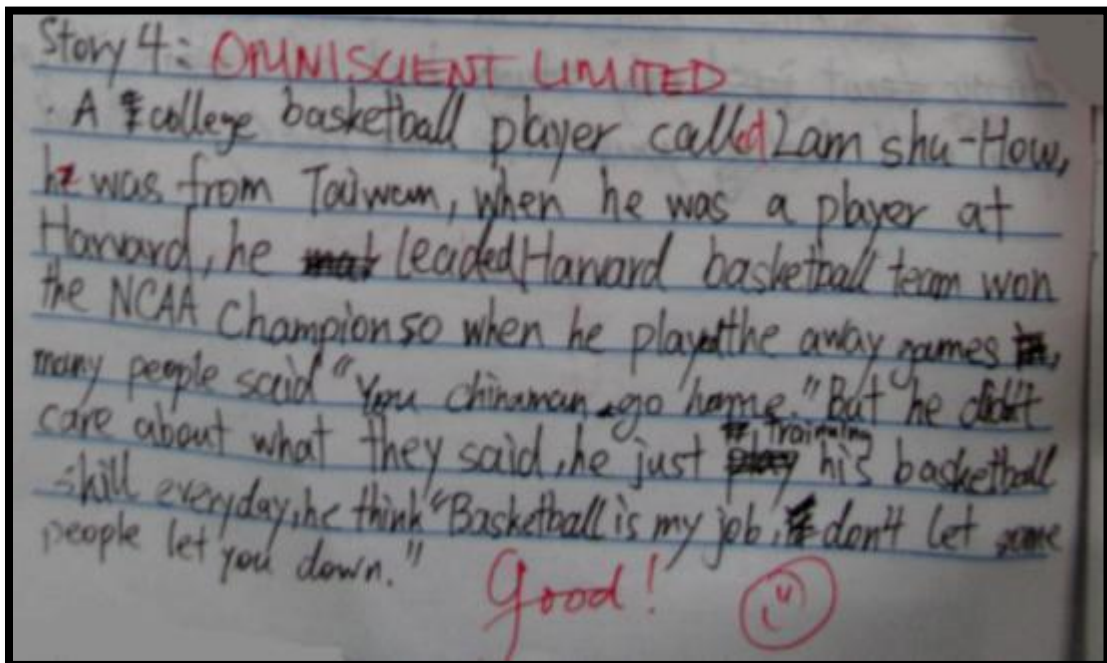 Story 4: OMNISCIENT LIMITED
· A college basketball player called Lam shu-How,
he was from Taiwan, when he was a player at
Harvard, he leaded Harvard basketball team won
the NCAA Champion so when he played the away games,
many people said "You chinaman go home." But he didn't
care about what they said, he just training his basketball
skill everyday, he think "Basketball is my job, don't let some
people let you down."
Good!